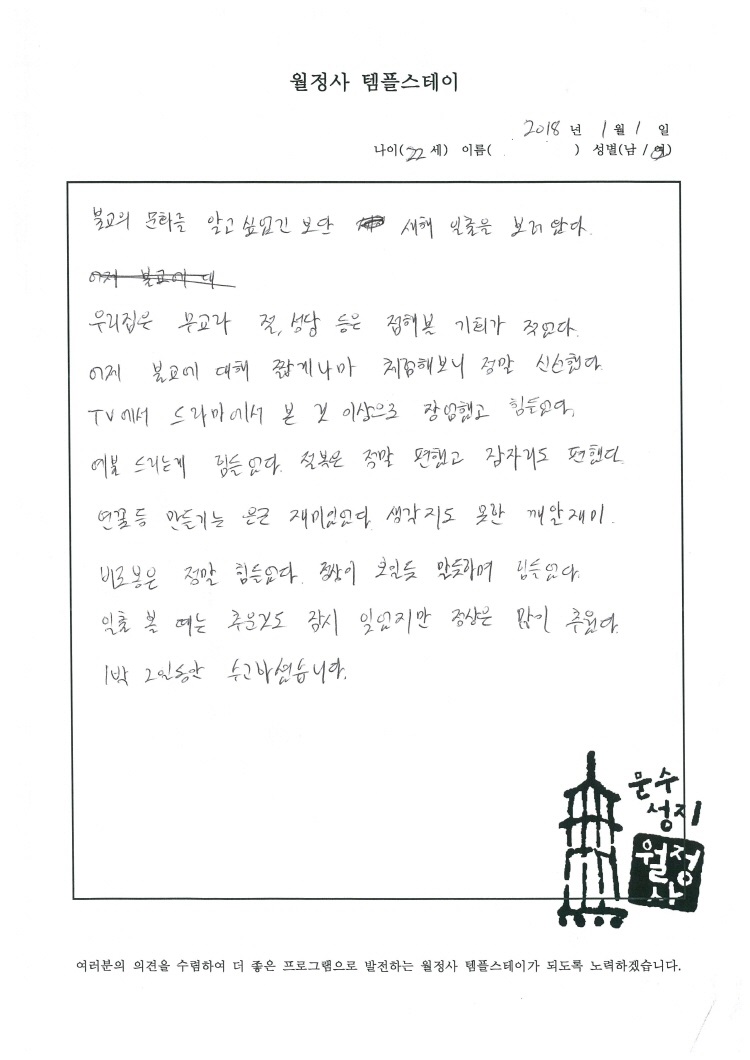 월정사 템플스테이
2018 년 1 월 1 일
나이(22 세) 이름( ) 성별(남 / 여)
불교의 문화를 알고 싶었긴 보단 새해 일출을 보러 왔다.
어제 불교에 대
우리집은 무교라 절, 성당 등은 접해볼 기회가 적었다.
어제 불교에 대해 짧게나마 체험해보니 정말 신선했다.
TV에서 드라마에서 본 것 이상으로 장엄했고 힘들었다.
예불 드리는게 힘들었다. 절복은 정말 편했고 잠자리도 편했다.
연꽃등 만들기는 은근 재미있었다. 생각지도 못한 깨알재미.
비로봉은 정말 힘들었다. 정상이 보일듯 말듯하며 힘들었다.
일출 볼 때는 추운것도 잠시 잊었지만 정상은 많이 추웠다.
1박 2일동안 수고하셨습니다.
문수
성지
월정
사
여러분의 의견을 수렴하여 더 좋은 프로그램으로 발전하는 월정사 템플스테이가 되도록 노력하겠습니다.